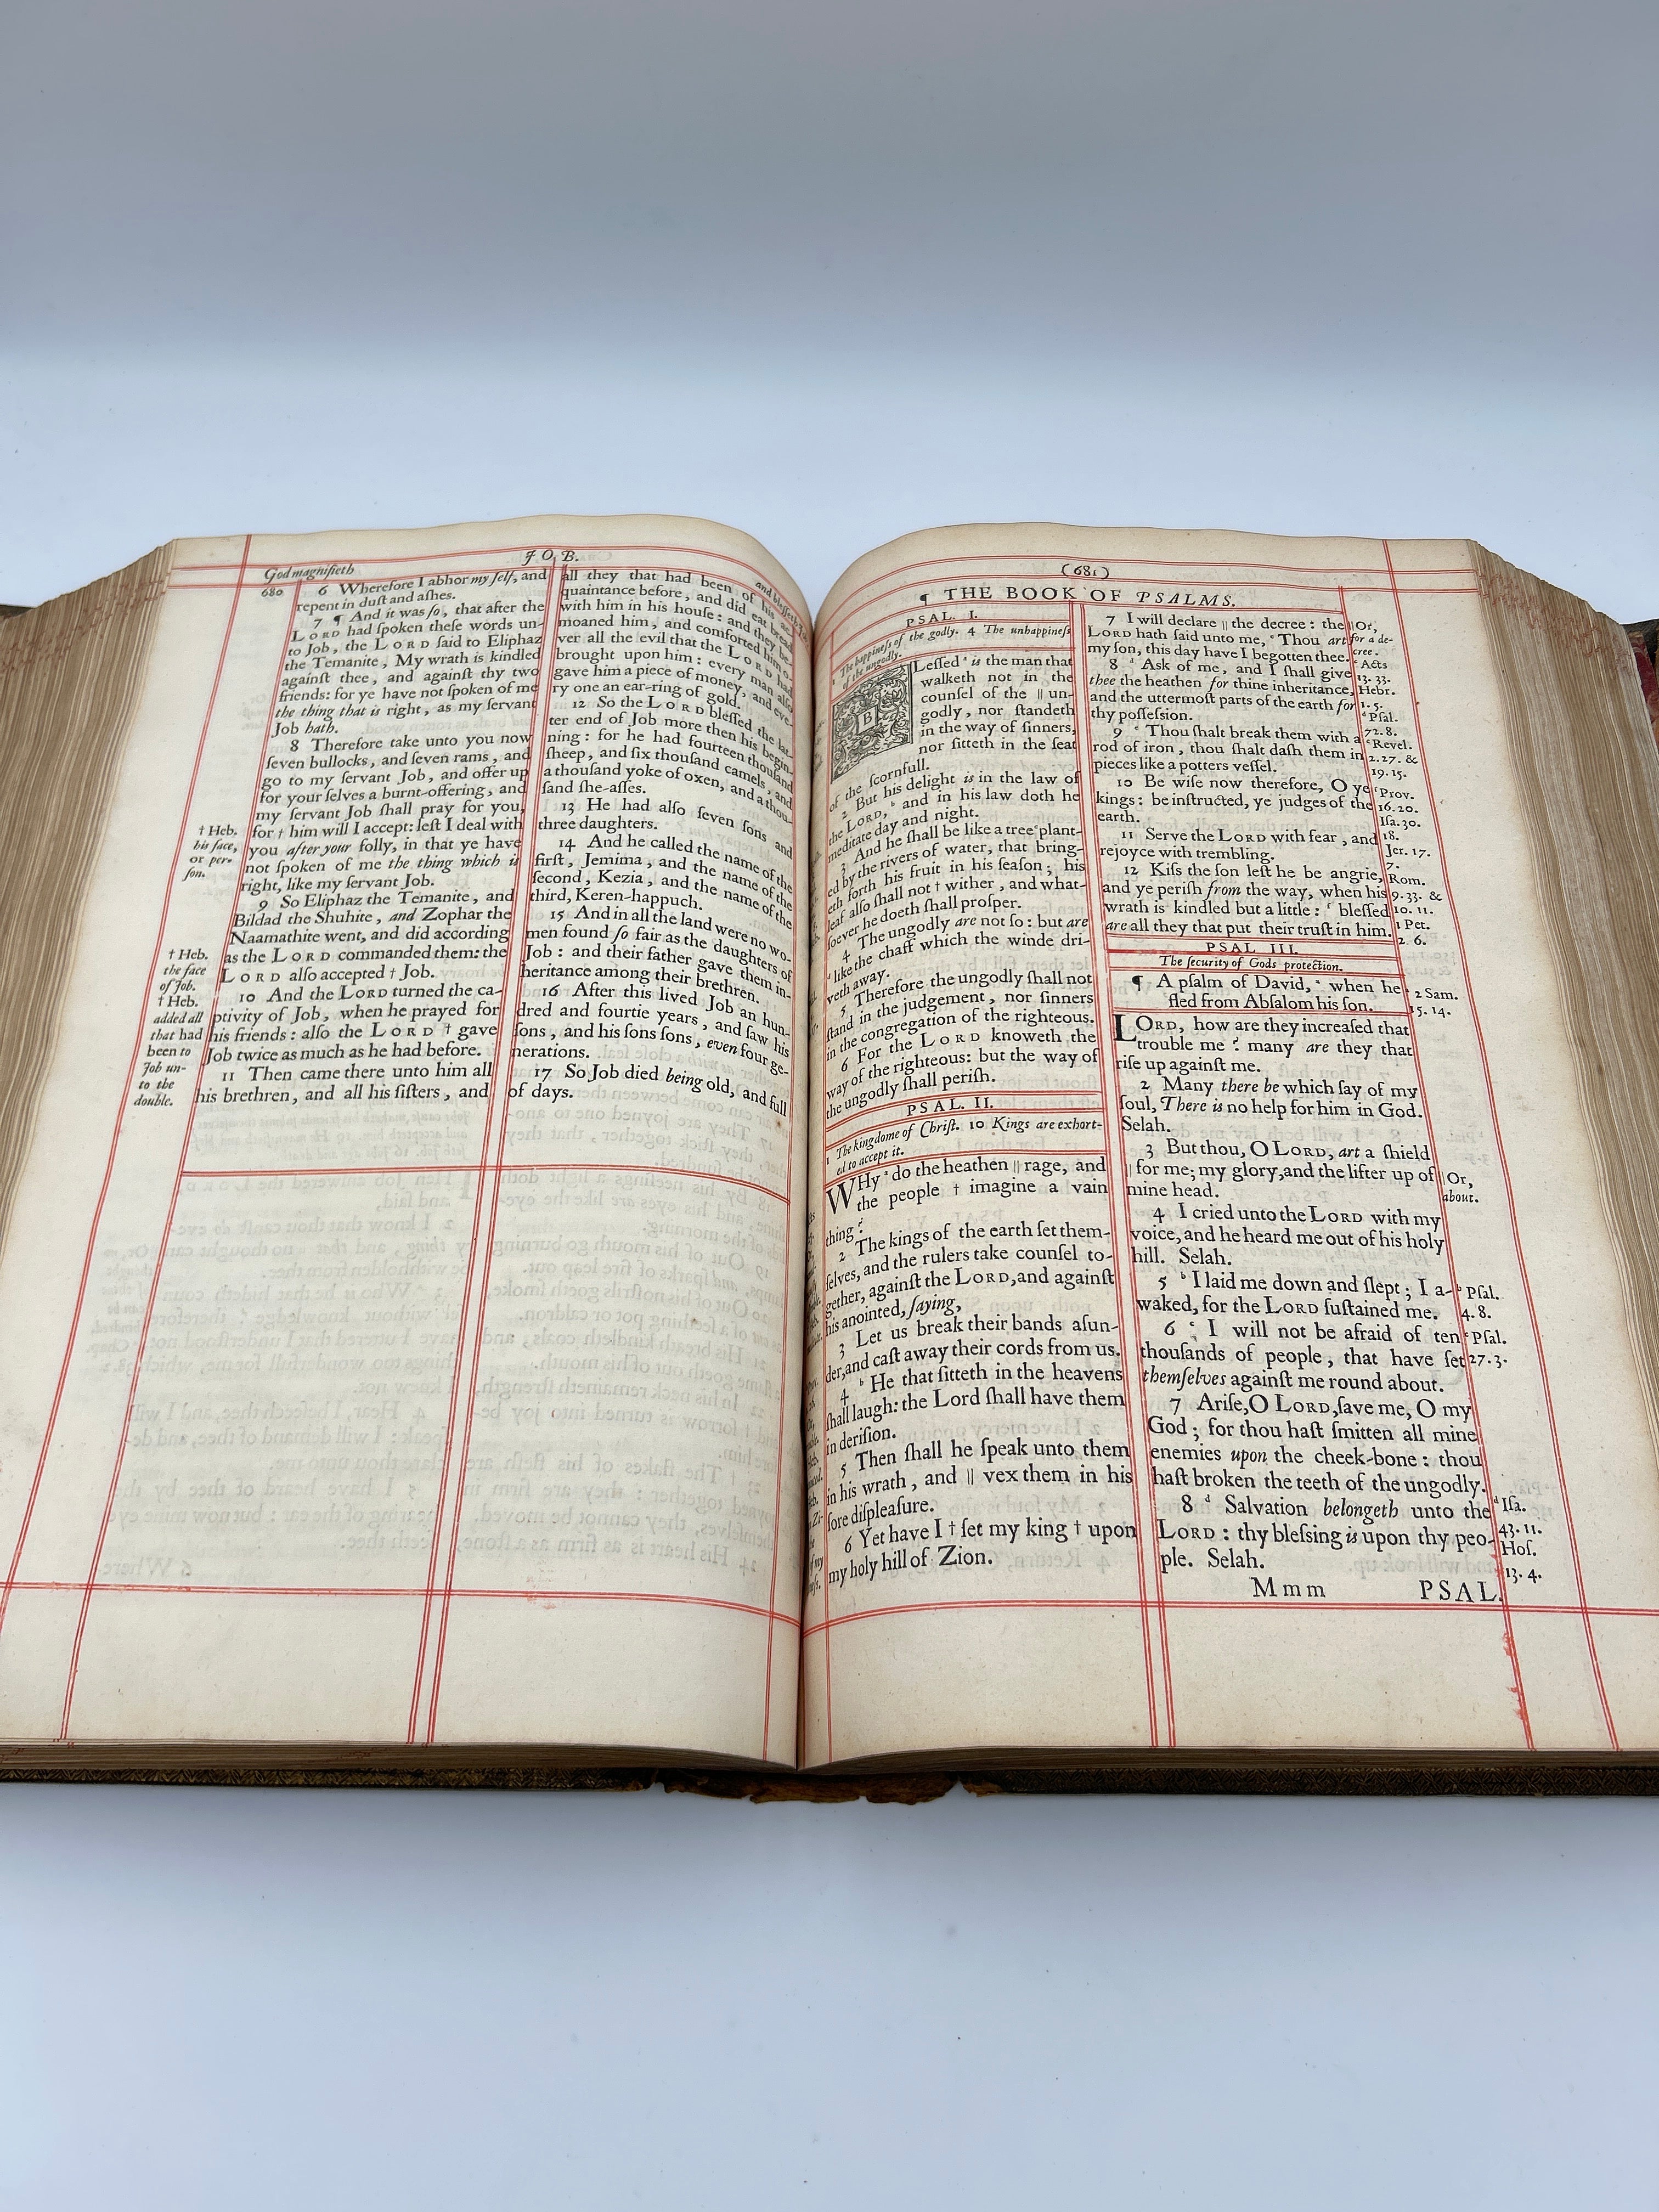 God magnifieth
JOB.
680
6 Wherefore I abhor my ſelf, and
repent in duſt and aſhes.
7 ¶ And it was ſo, that after the
LORD had ſpoken theſe words un-
to Job, the LORD ſaid to Eliphaz
the Temanite, My wrath is kindled
againſt thee, and againſt thy two
friends: for ye have not ſpoken of me
the thing that is right, as my ſervant
Job hath.
8 Therefore take unto you now
ſeven bullocks, and ſeven rams, and
go to my ſervant Job, and offer up
for your ſelves a burnt-offering, and
my ſervant Job ſhall pray for you,
for † him will I accept: leſt I deal with
you after your folly, in that ye have
not ſpoken of me the thing which is
right, like my ſervant Job.
9 So Eliphaz the Temanite, and
Bildad the Shuhite, and Zophar the
Naamathite went, and did according
as the LORD commanded them: the
LORD alſo accepted † Job.
10 And the LORD turned the ca-
ptivity of Job, when he prayed for
his friends: alſo the LORD † gave
Job twice as much as he had before.
11 Then came there unto him all
his brethren, and all his ſiſters, and
† Heb.
his face,
or per-
ſon.
† Heb.
the face
of Job.
† Heb.
added all
that had
been to
Job un-
to the
double.
and bleſſeth
all they that had been of his ac-
quaintance before, and did eat bread
with him in his houſe: and they be-
moaned him, and comforted him o-
ver all the evil that the LORD had
brought upon him: every man alſo
gave him a piece of money, and eve-
ry one an ear-ring of gold.
12 So the LORD bleſſed the lat-
ter end of Job more then his begin-
ning: for he had fourteen thouſand
ſheep, and ſix thouſand camels, and
a thouſand yoke of oxen, and a thou-
ſand ſhe-aſſes.
13 He had alſo ſeven ſons and
three daughters.
14 And he called the name of the
firſt, Jemima, and the name of the
ſecond, Kezia, and the name of the
third, Keren-happuch.
15 And in all the land were no wo-
men found ſo fair as the daughters of
Job: and their father gave them in-
heritance among their brethren.
16 After this lived Job an hun-
dred and fourtie years, and ſaw his
ſons, and his ſons ſons, even four ge-
nerations.
17 So Job died being old, and full
of days.
(681)
¶ THE BOOK OF PSALMS.
PSAL. I.
1 The happineſs of the godly. 4 The unhappineſs
of the ungodly.
BLeſſed a is the man that
walketh not in the
counſel of the || un-
godly, nor ſtandeth
in the way of ſinners,
nor ſitteth in the ſeat
of the ſcornfull.
2 But his delight is in the law of
the LORD, b and in his law doth he
meditate day and night.
3 And he ſhall be like a tree c plant-
ed by the rivers of water, that bring-
eth forth his fruit in his ſeaſon; his
leaf alſo ſhall not † wither, and what-
ſoever he doeth ſhall proſper.
4 The ungodly are not ſo: but are
d like the chaff which the winde dri-
veth away.
5 Therefore the ungodly ſhall not
ſtand in the judgement, nor ſinners
in the congregation of the righteous.
6 For the LORD knoweth the
way of the righteous: but the way of
the ungodly ſhall periſh.
PSAL. II.
1 The kingdome of Chriſt. 10 Kings are exhort-
ed to accept it.
WHy a do the heathen || rage, and
the people † imagine a vain
thing?
2 The kings of the earth ſet them-
ſelves, and the rulers take counſel to-
gether, againſt the LORD, and againſt
his anointed, ſaying,
3 Let us break their bands aſun-
der, and caſt away their cords from us.
4 b He that ſitteth in the heavens
ſhall laugh: the Lord ſhall have them
in deriſion.
5 Then ſhall he ſpeak unto them
in his wrath, and || vex them in his
ſore diſpleaſure.
6 Yet have I † ſet my king † upon
my holy hill of Zion.
7 I will declare || the decree: the
LORD hath ſaid unto me, c Thou art
my ſon, this day have I begotten thee.
8 d Ask of me, and I ſhall give
thee the heathen for thine inheritance,
and the uttermoſt parts of the earth for
thy poſſeſſion.
9 e Thou ſhalt break them with a
rod of iron, thou ſhalt daſh them in
pieces like a potters veſſel.
10 Be wiſe now therefore, O ye
kings: be inſtructed, ye judges of the
earth.
11 Serve the LORD with fear, and
rejoyce with trembling.
12 Kiſs the ſon leſt he be angrie,
and ye periſh from the way, when his
wrath is kindled but a little: f bleſſed
are all they that put their truſt in him.
|| Or,
for a de-
cree.
c Acts
13. 33.
Hebr.
1. 5.
d Pſal.
72. 8.
e Revel.
2. 27. &
19. 15.
f Prov.
16. 20.
Iſa. 30.
18.
Jer. 17.
7.
Rom.
9. 33. &
10. 11.
1 Pet.
2. 6.
PSAL. III.
The ſecurity of Gods protection.
¶ A pſalm of David, a when he
fled from Abſalom his ſon.
a 2 Sam.
15. 14.
LORD, how are they increaſed that
trouble me? many are they that
riſe up againſt me.
2 Many there be which ſay of my
ſoul, There is no help for him in God.
Selah.
3 But thou, O LORD, art a ſhield
|| for me; my glory, and the lifter up of
mine head.
4 I cried unto the LORD with my
voice, and he heard me out of his holy
hill. Selah.
5 b I laid me down and ſlept; I a-
waked, for the LORD ſuſtained me.
6 c I will not be afraid of ten
thouſands of people, that have ſet
themſelves againſt me round about.
7 Ariſe, O LORD, ſave me, O my
God; for thou haſt ſmitten all mine
enemies upon the cheek-bone: thou
haſt broken the teeth of the ungodly.
8 d Salvation belongeth unto the
LORD: thy bleſſing is upon thy peo-
ple. Selah.
|| Or,
about.
b Pſal.
4. 8.
c Pſal.
27. 3.
d Iſa.
43. 11.
Hoſ.
13. 4.
Mmm
PSAL.